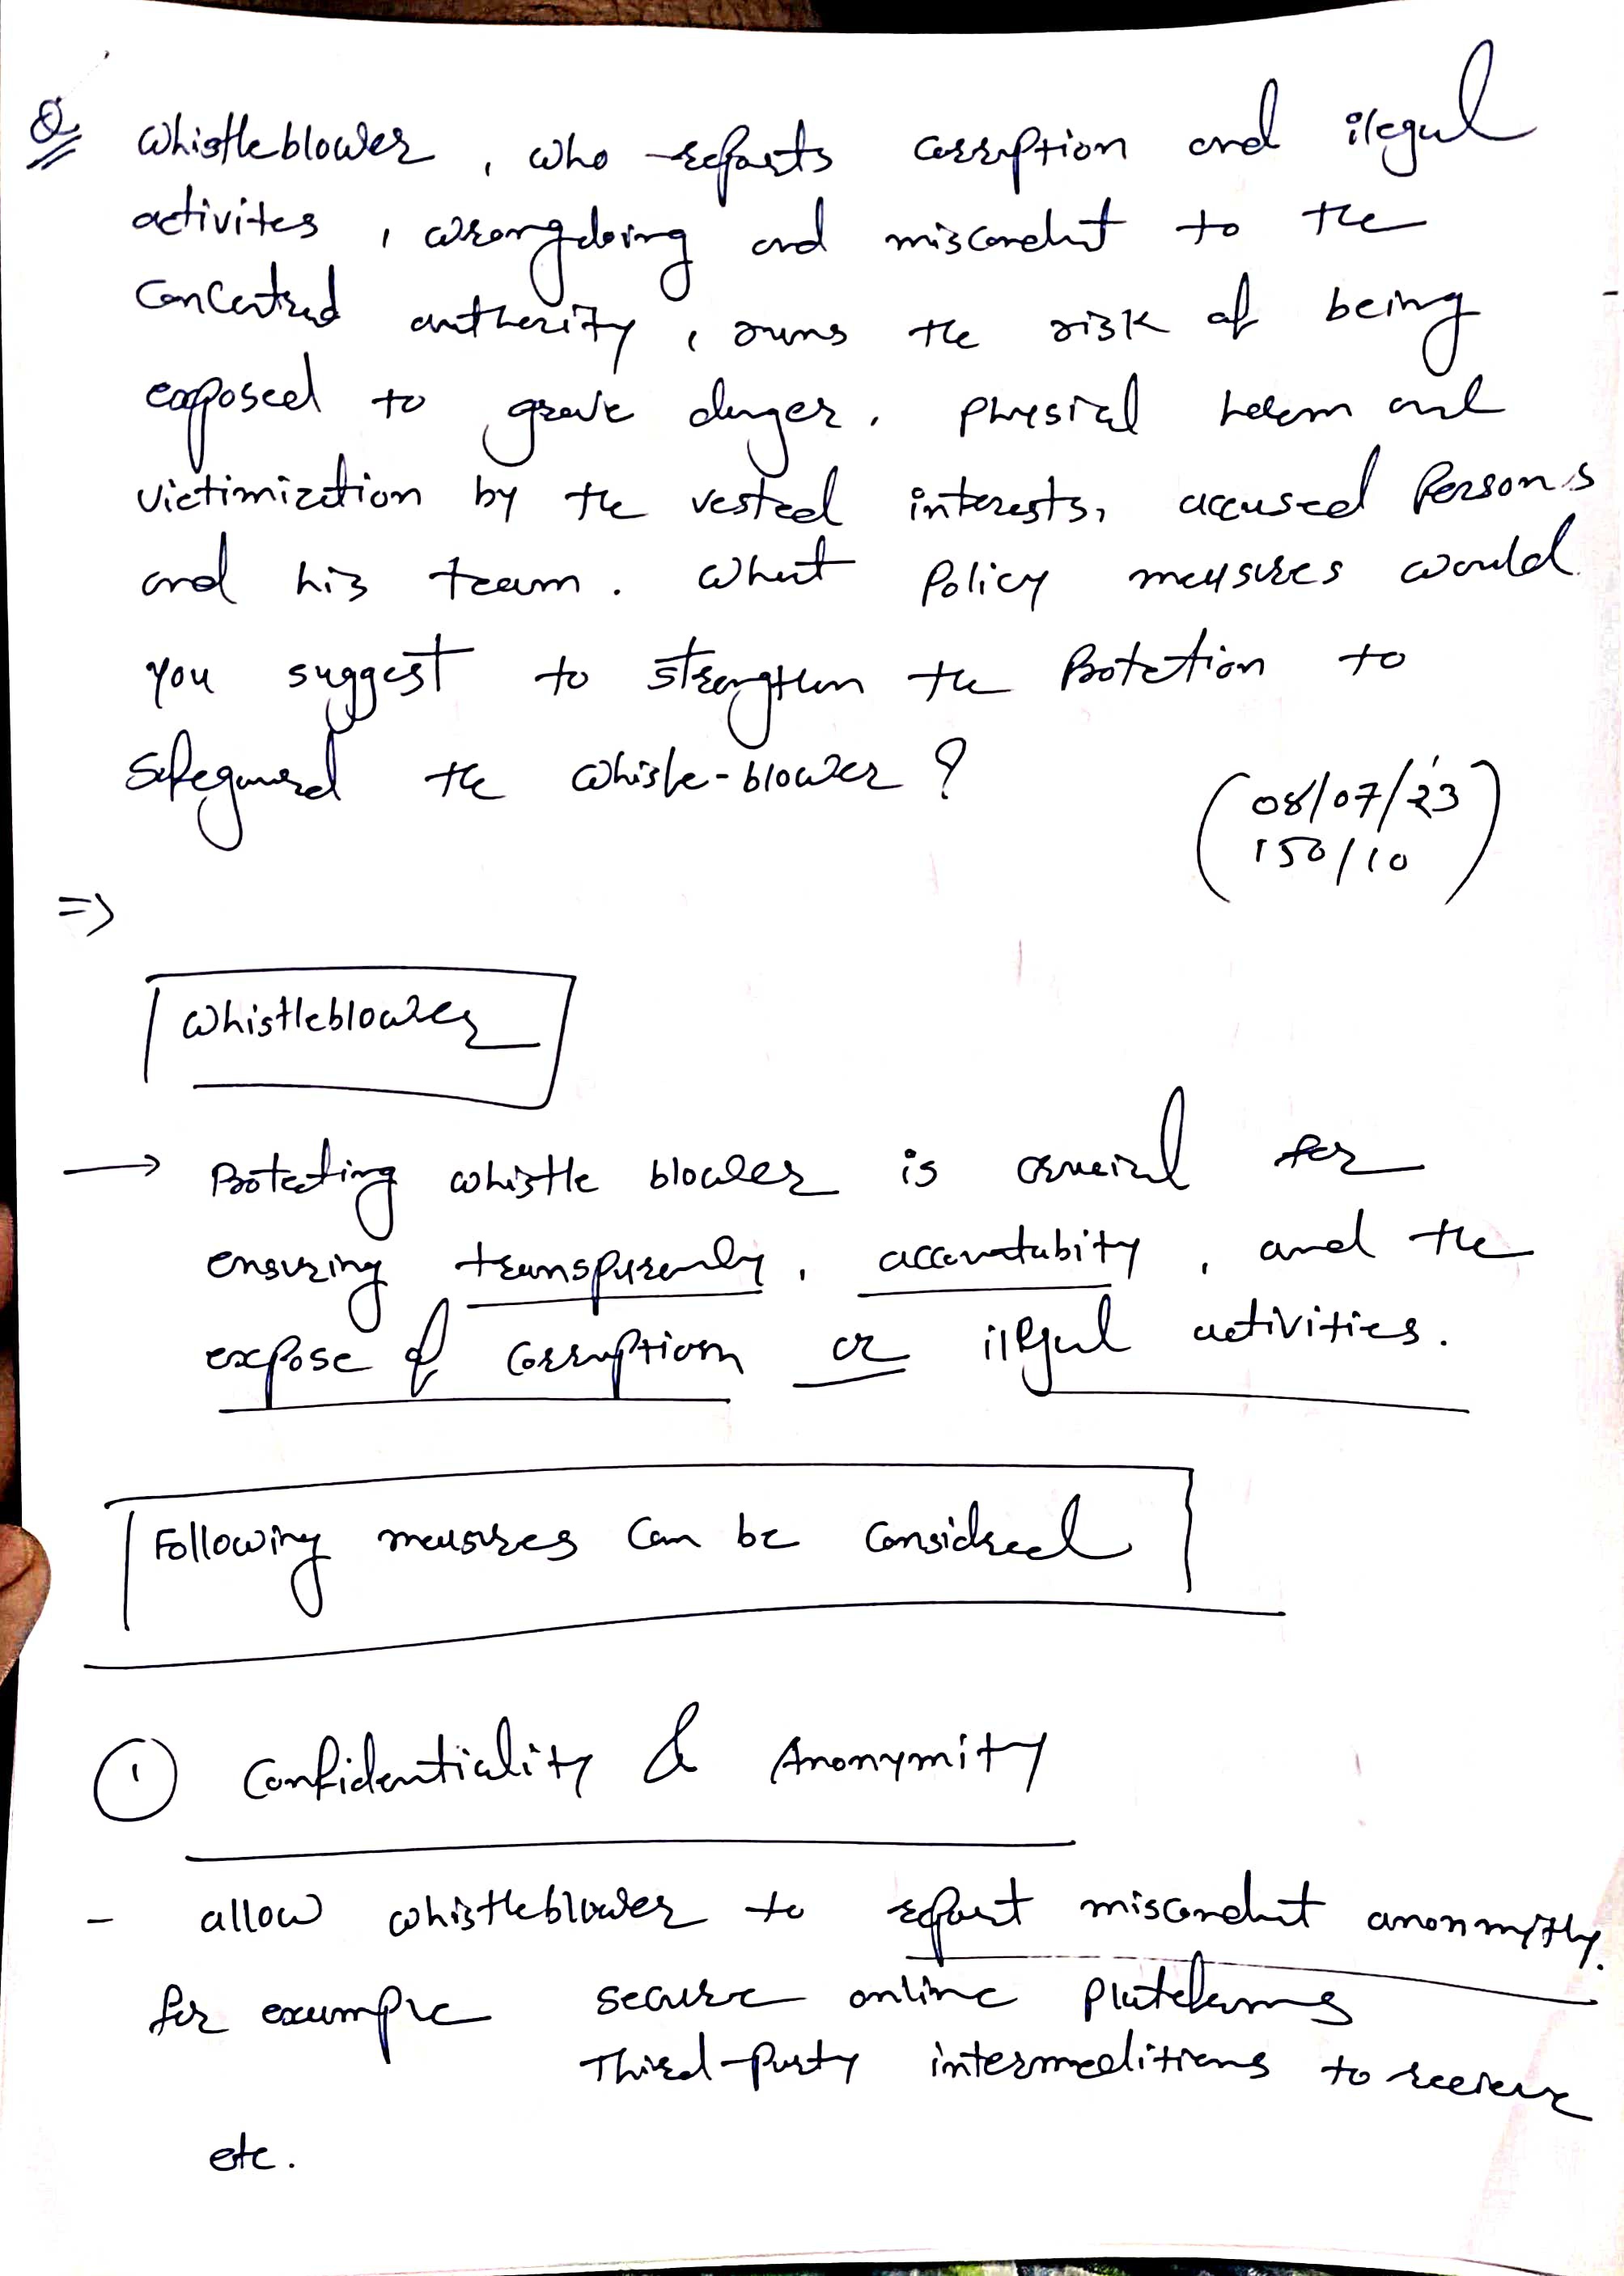 Q Whistleblower, who reports corruption and ilegal
activites, wrongdoing and misconduct to the
Concentred authority, runs the risk of being
exposed to grave danger. physical harm and
victimization by the vested interests, accused Persons
and his team. What Policy measures would
you suggest to strengthen the Protetion to
Safeguard the whisle-blower?
(08/07/23
150/10)
=>
Whistleblower
→ Protecting whistle blower is crucial for
ensuring transparency, accountabity, and the
expose of Corruption or illegal activities.
Following measures Can be Considered
① Confidentiality & Anonymity
- allow whistleblower to report misconduct anonmytly.
for example secure online platforms
Third-Party intermeditions to receive
etc.